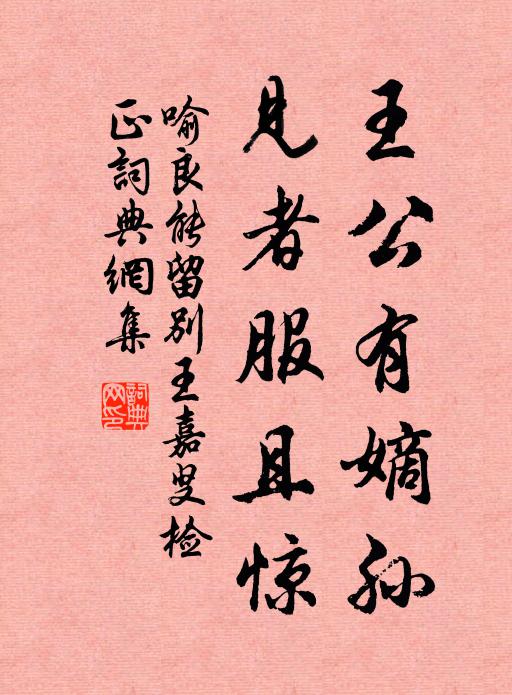 王公有嫡孙
见者服且惊
喻良能留别王嘉叟检
正詞典網集
詞典
网印